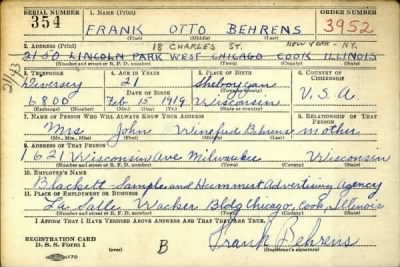 SERIAL NUMBER 1. NAME (Print) ORDER NUMBER
354 FRANK OTTO BEHRENS 3952
(First) (Middle) (Last)
18 CHARLES ST. NEW YORK - N.Y.
2. ADDRESS (Print)
2150 LINCOLN PARK WEST CHICAGO COOK ILLINOIS
(Number and street or R. F. D. number) (Town) (County) (State)
3. TELEPHONE 4. AGE IN YEARS 5. PLACE OF BIRTH 6. COUNTRY OF CITIZENSHIP
Diversey 21 Sheboygan
DATE OF BIRTH (Town or county)
6800 Feb 15 1919 Wisconsin U.S.A.
(Exchange) (No.) (Mo.) (Day) (Yr.) (State or country)
7. NAME OF PERSON WHO WILL ALWAYS KNOW YOUR ADDRESS 8. RELATIONSHIP OF THAT PERSON
Mrs John Winefred Behrens mother
(Mr., Mrs., Miss) (First) (Middle) (Last)
9. ADDRESS OF THAT PERSON
1621 Wisconsin Ave. Milwaukee Wisconsin
(Number and street or R. F. D. number) (Town) (County) (State)
10. EMPLOYER'S NAME
Blackett Sample and Hummert Advertising Agency
11. PLACE OF EMPLOYMENT OR BUSINESS
La Salle Wacker Bldg Chicago, Cook, Illinois
(Number and street or R. F. D. number) (Town) (County) (State)
I AFFIRM THAT I HAVE VERIFIED ABOVE ANSWERS AND THAT THEY ARE TRUE.
REGISTRATION CARD
D. S. S. Form 1 B Frank Behrens
(over) (Registrant's signature)